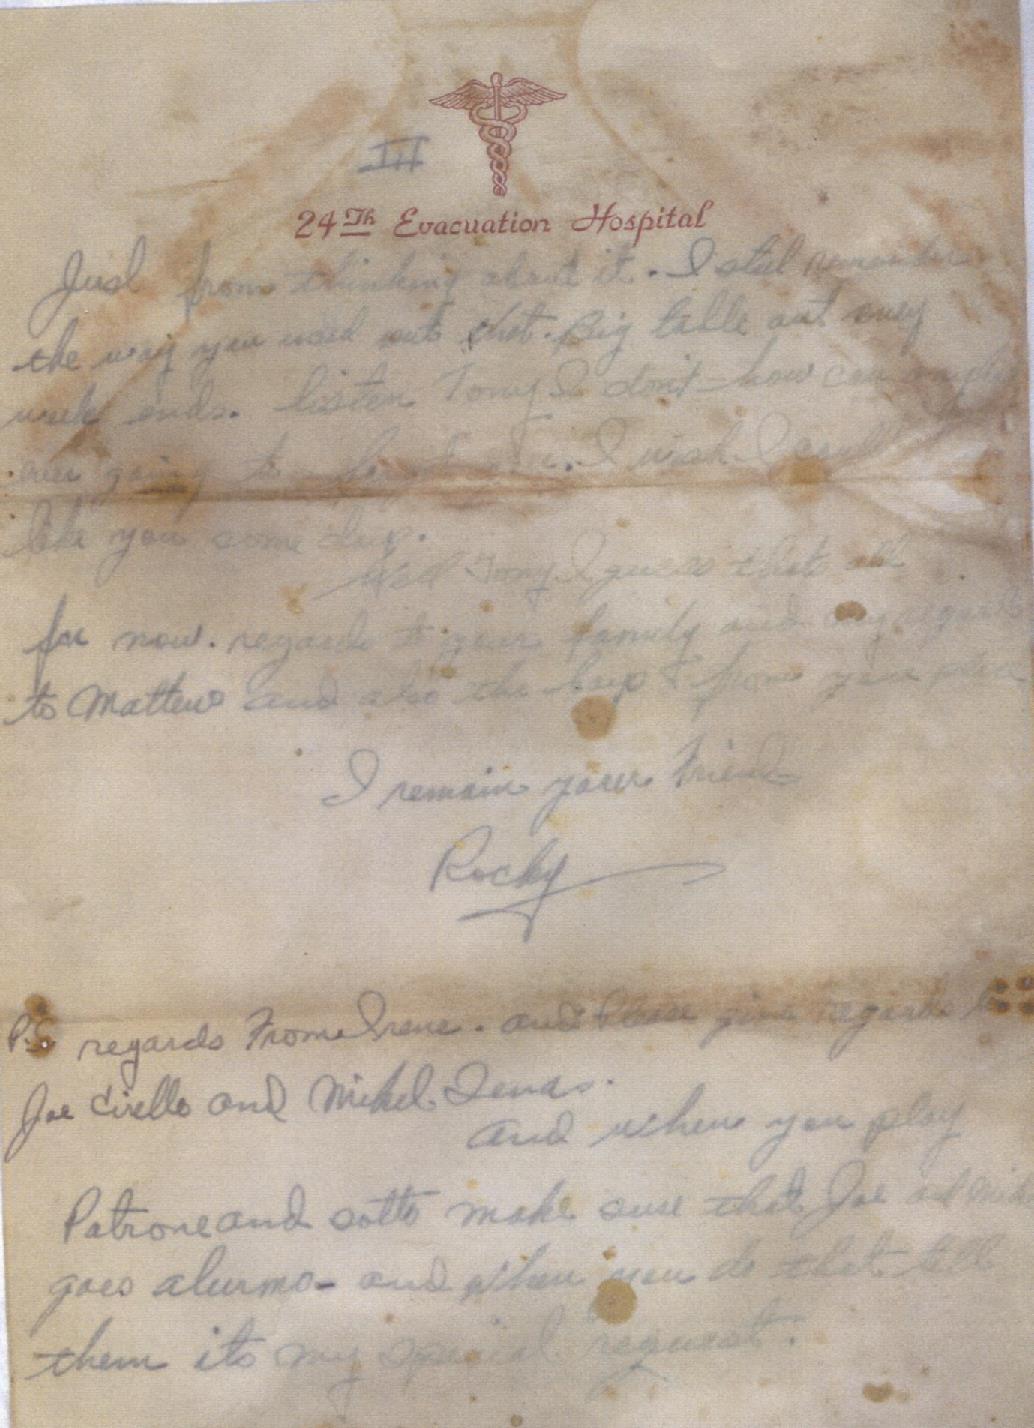 III
24Th Evacuation Hospital
Just from thinking about it. I still remember
the way you used eat that Big table out every
week ends. listen Tony I don't how can
ever going to I wish I could
like you some day.
Well Tony I guess that all
for now. regards to your family and my regards
to Mattew and also the boys from your
I remain your Friend
Rocky
P.S. regards From Irene. and Please give regards to
Joe Cirello and Mikel
and when you play
Patrone and sotto make sure that Joe and
goes alurmo- and when you do that tell
them its my special request.